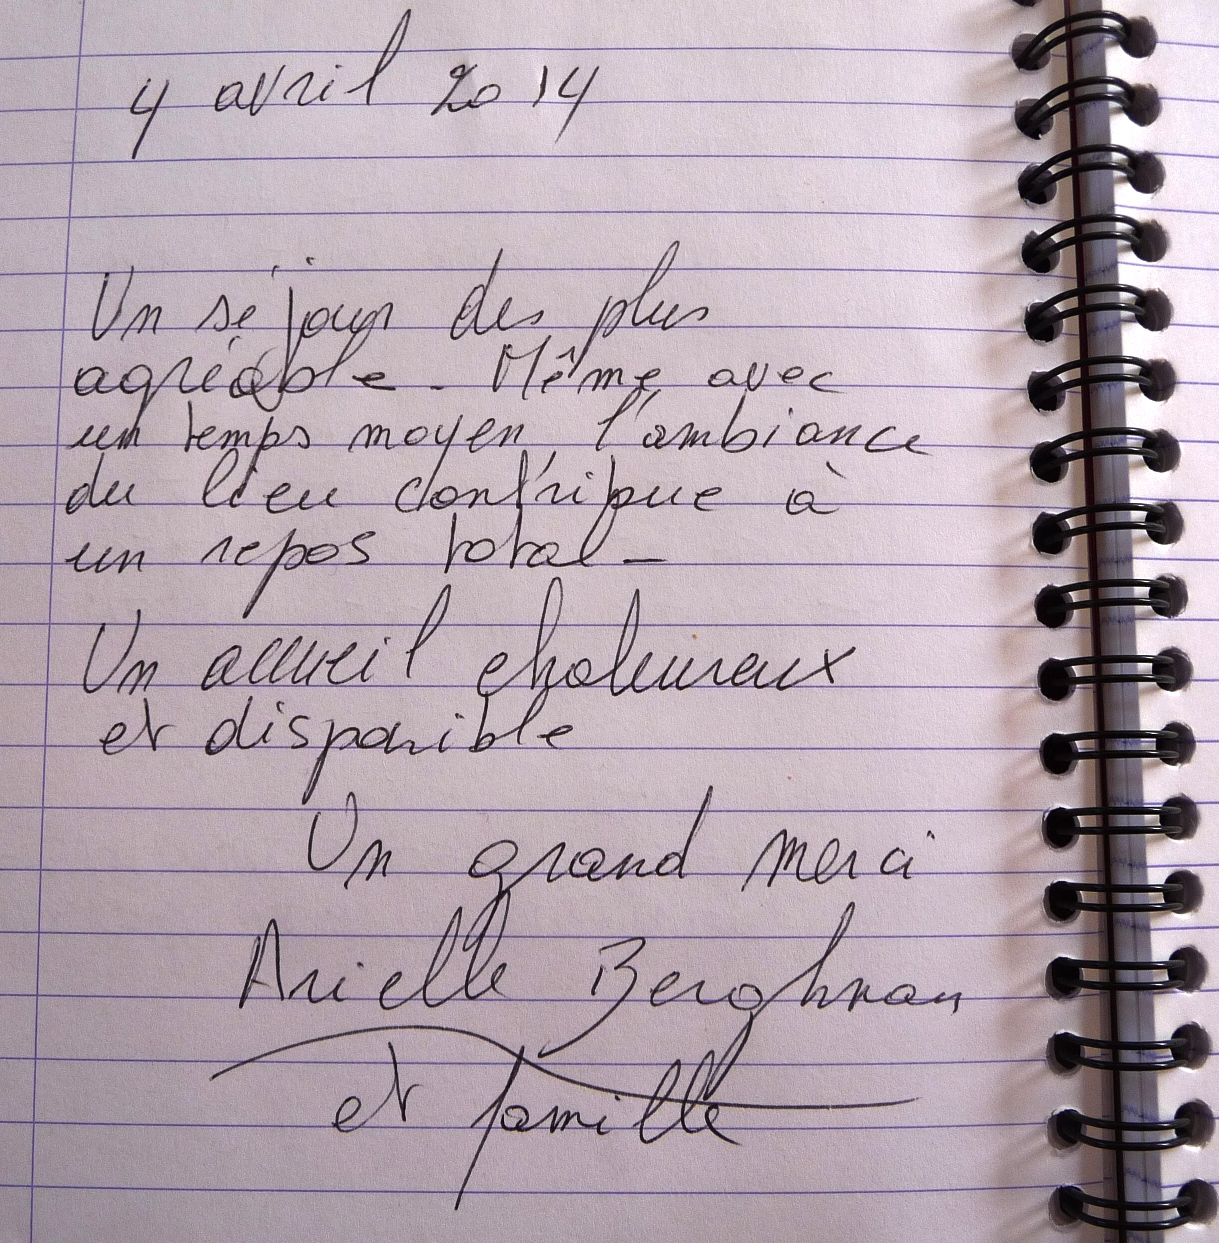 4 avril 2014
Un séjour des plus
agréable - Même avec
un temps moyen, l'ambiance
du lieu contribue à
un repos total -
Un accueil chaleureux
et disponible
Un grand merci
Arielle
et famille